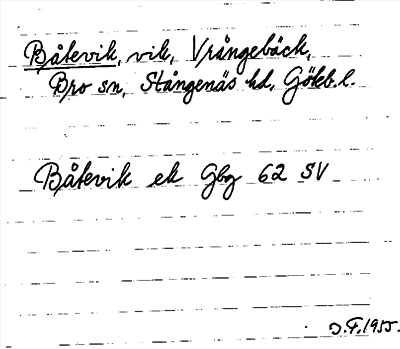 Båtevik, vik, Vrångebäck,
Bro sn, Stångenäs hd, Göteb. l.
Båtevik ek Gbg 62 SV
J.F. 1955.